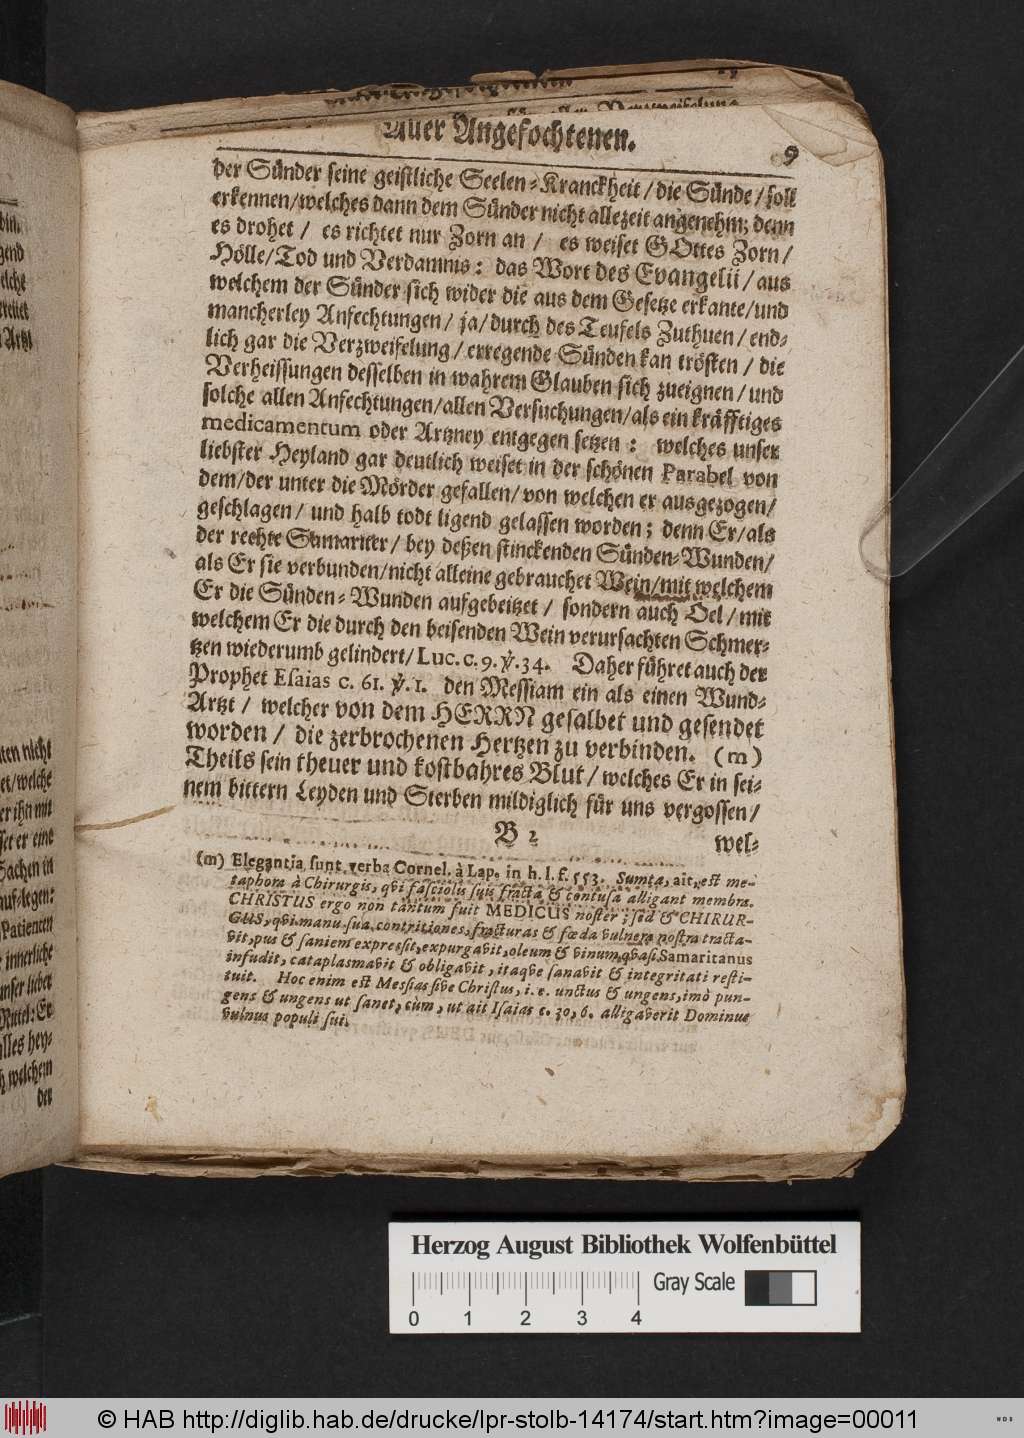 Aller Angefochtenen.
9
der Sünder seine geistliche Seelen-Kranckheit / die Sünde / soll
erkennen/welches dann dem Sünder nicht allezeit angenehm; denn
es drohet / es richtet nur Zorn an / es weiset GOttes Zorn /
Hölle/Tod und Verdamnis: das Wort des Evangelii / aus
welchem der Sünder sich wider die aus dem Gesetze erkante/und
mancherley Anfechtungen / ja/ durch des Teufels Zuthuen / end-
lich gar die Verzweifelung / erregende Sünden kan trösten / die
Verheissungen desselben in wahrem Glauben sich zueignen / und
solche allen Anfechtungen/allen Versuchungen/als ein kräfftiges
medicamentum oder Artzney entgegen setzen: welches unser
liebster Heyland gar deutlich weiset in der schönen Parabel von
dem/der unter die Mörder gefallen/ von welchen er ausgezogen/
geschlagen / und halb todt ligend gelassen worden; denn Er/als
der rechte Samariter / bey deßen stinckenden Sünden-Wunden/
als Er sie verbunden/nicht alleine gebrauchet Wein/mit welchem
Er die Sünden-Wunden aufgebeitzet / sondern auch Oel / mit
welchem Er die durch den beisenden Wein verursachten Schmer-
tzen wiederumb gelindert/ Luc. c. 9. ℣. 34. Daher führet auch der
Prophet Esaias c. 61. ℣. 1. den Messiam ein als einen Wund-
Artzt / welcher von dem HERRN gesalbet und gesendet
worden / die zerbrochenen Hertzen zu verbinden. (m)
Theils sein theuer und kostbahres Blut / welches Er in sei-
nem bittern Leyden und Sterben mildiglich für uns vergossen /
B 2
wel-
(m) Elegantia sunt verba Cornel. à Lap. in h. l. f. 553. Sumta, ait, est me-
taphora à Chirurgis, qvi fasciolis suis fracta & contusa alligant membra.
CHRISTUS ergo non tantum fuit MEDICUS noster ; sed & CHIRUR-
GUS, qvi manu sua contritiones, fracturas & fœda vulnera nostra tracta-
vit, pus & saniem expressit, expurgavit, oleum & vinum, qvasi Samaritanus
infudit, cataplasmavit & obligavit, itaqve sanavit & integritati resti-
tuit. Hoc enim est Messias sive Christus, i. e. unctus & ungens, imò pun-
gens & ungens ut sanet, cùm, ut ait Isaias c. 30, 6. alligaverit Dominus
vulnus populi sui.
gend
elche
Artzt
ten nicht
et/welche
er ihn mit
set er eine
Sachen in
auflegen:
Patienten
innerliche
unser lieber
Mittel: Er
alles hey-
h welchem
der
Herzog August Bibliothek Wolfenbüttel
Gray Scale
0 1 2 3 4
© HAB http://diglib.hab.de/drucke/lpr-stolb-14174/start.htm?image=00011